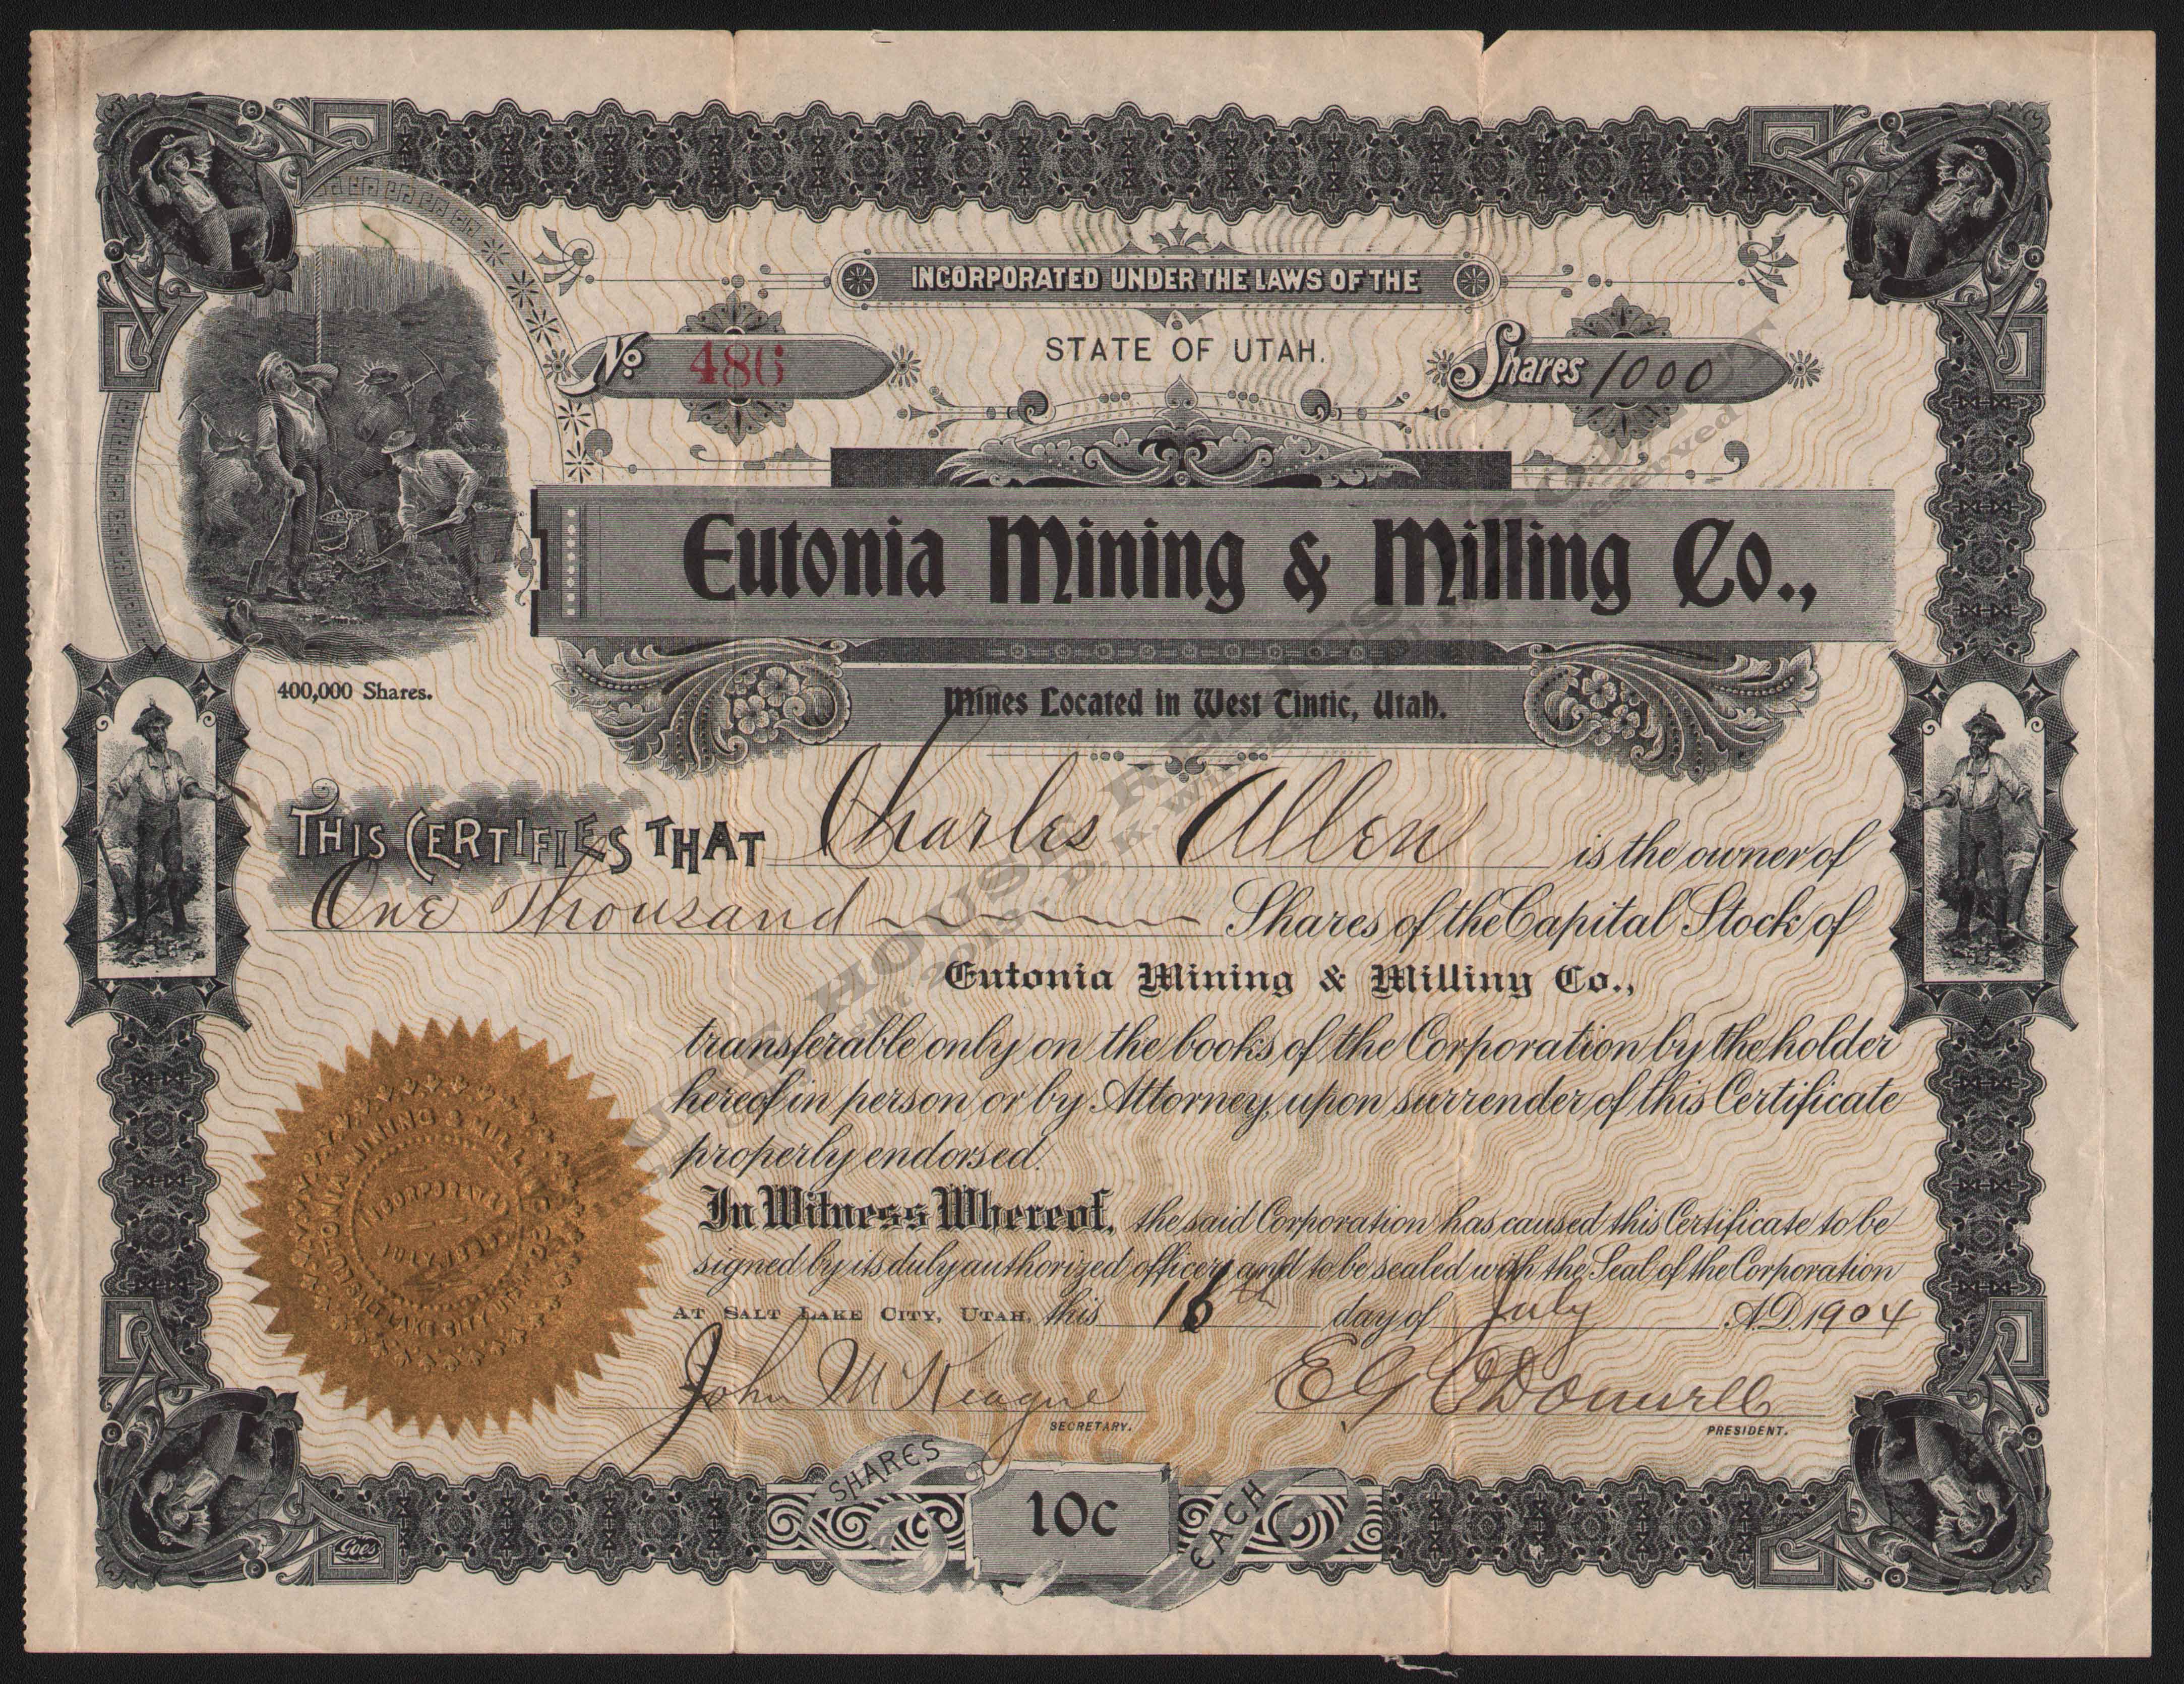 INCORPORATED UNDER THE LAWS OF THE
No 486
STATE OF UTAH.
Shares 1000
Eutonia Mining & Milling Co.,
Mines Located in West Tintic, Utah.
400,000 Shares.
THIS CERTIFIES THAT Charles Allen is the owner of
One Thousand Shares of the Capital Stock of
Eutonia Mining & Milling Co.,
transferable only on the books of the Corporation by the holder
hereof in person or by Attorney, upon surrender of this Certificate
properly endorsed.
In Witness Whereof, the said Corporation has caused this Certificate to be
signed by its duly authorized officers and to be sealed with the Seal of the Corporation
AT SALT LAKE CITY, UTAH, this 16th day of July A.D. 1904
John McKeague
SECRETARY.
E G O'Donnell
PRESIDENT.
EUTONIA MINING & MILLING CO.
INCORPORATED
SALT LAKE CITY, UTAH
SHARES 10c EACH
Goes